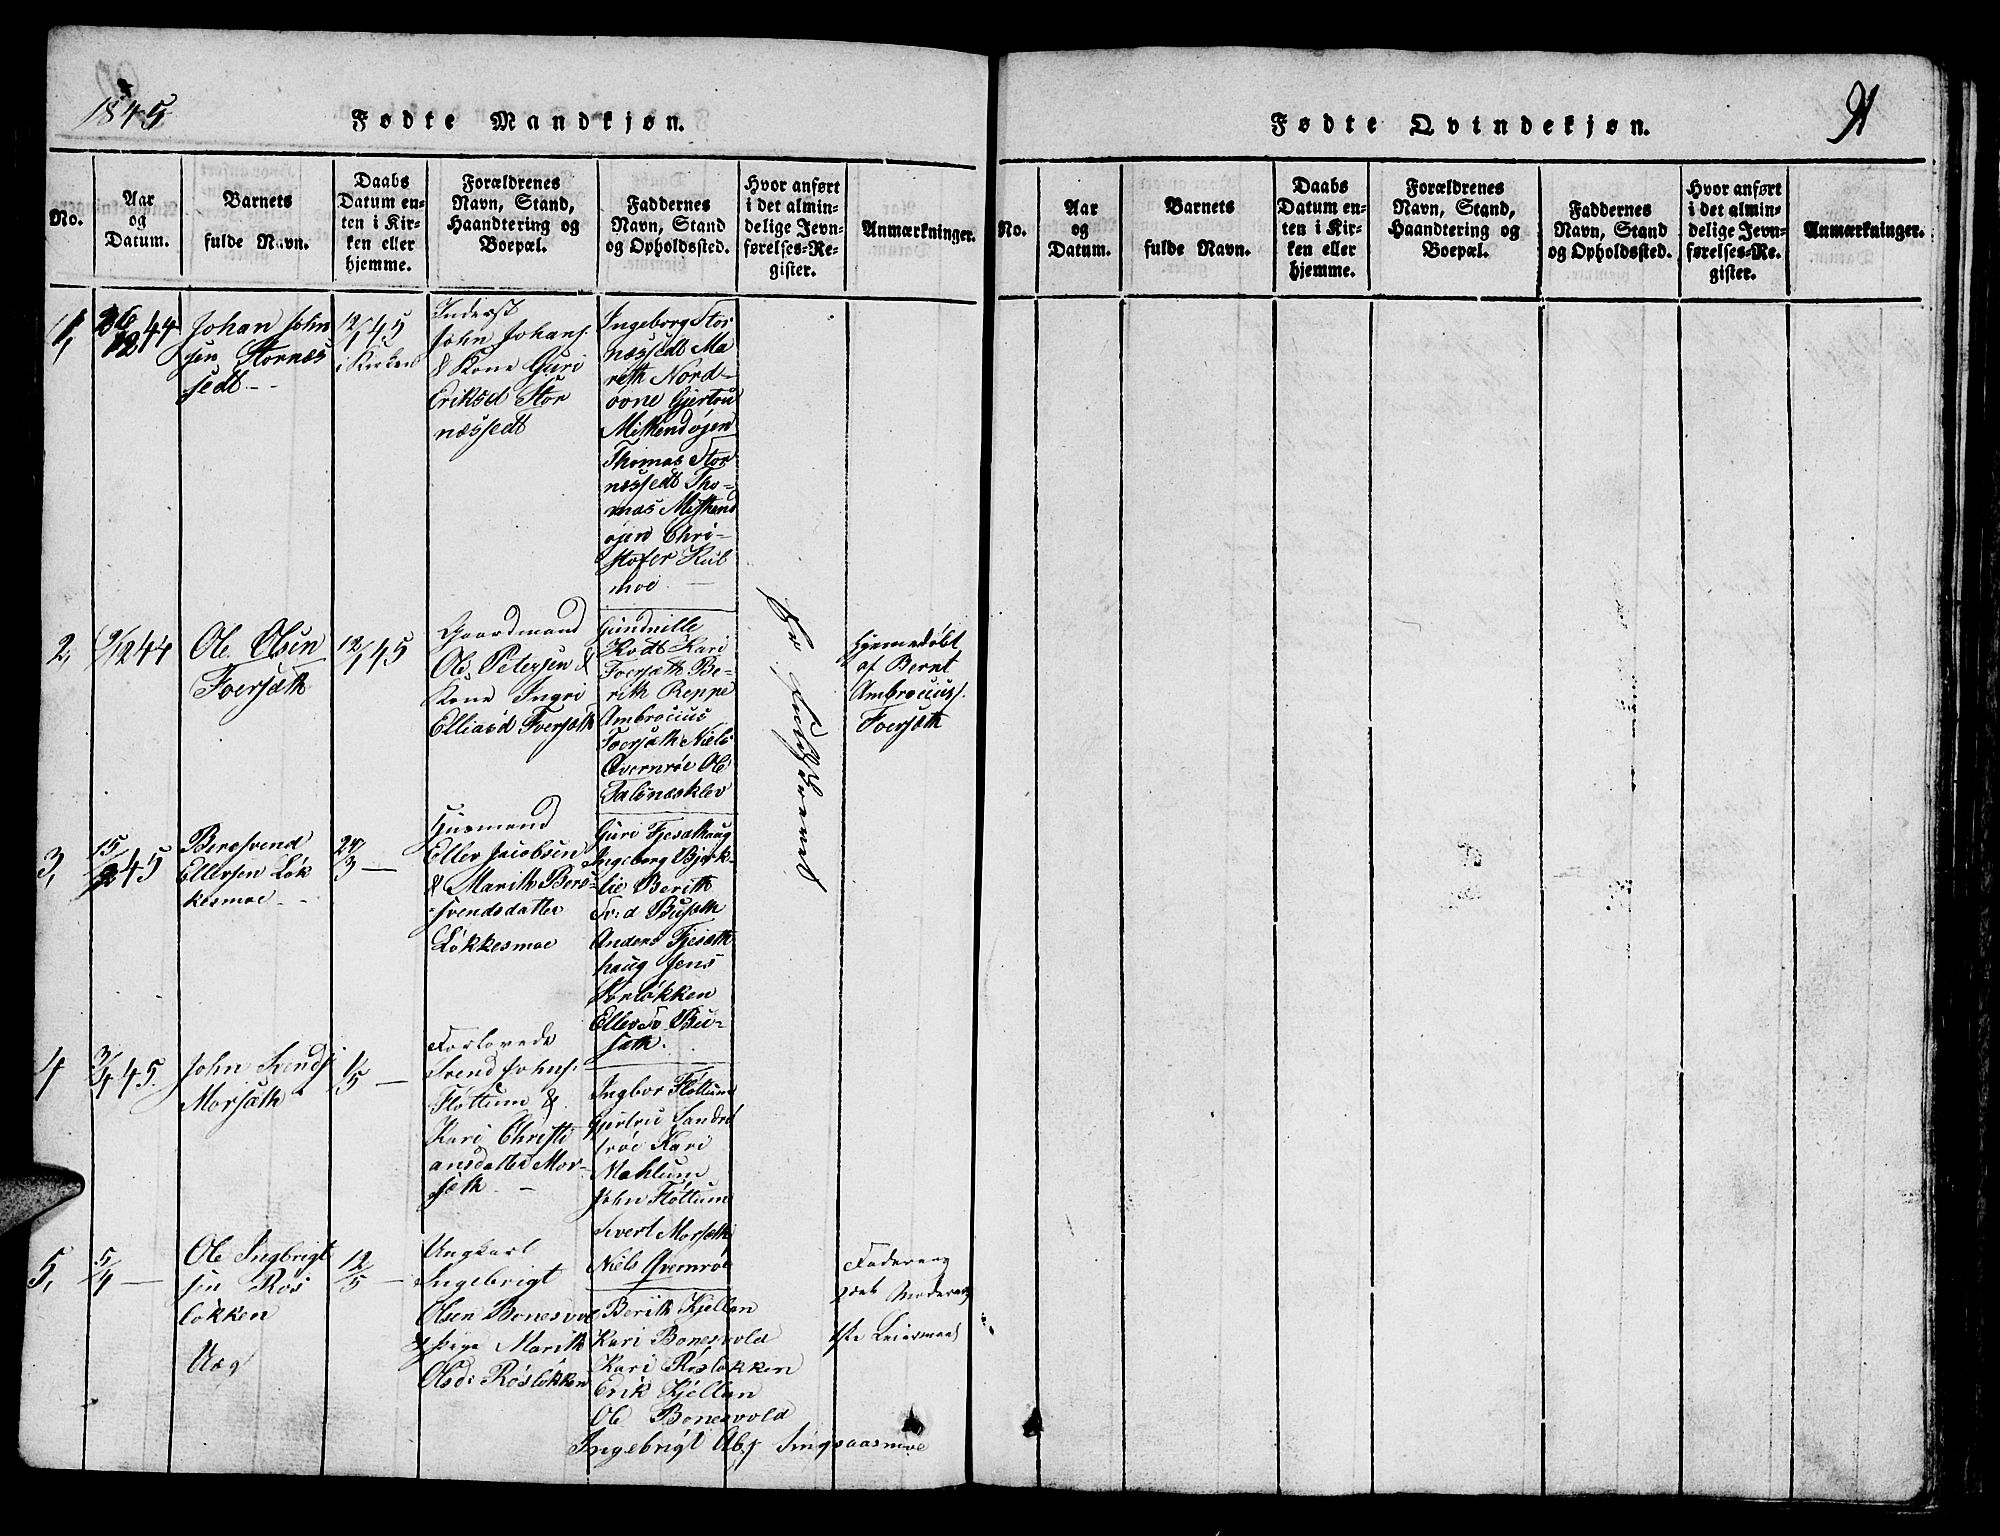 1845
Fødte Mandkjøn.
No.
Aar
og
Datum.
Barnets
fulde Navn.
Daabs
Datum en-
ten i Kir-
ken eller
hjemme.
Forældrenes
Navn, Stand,
Haandtering og
Boepæl.
Faddernes
Navn, Stand
og Opholdssted.
Hvor anført
i det almin-
delige Jevn-
førelses-Re-
gister.
Anmærkninger.
1,
26/12 44
Johan John
sen Stornæs
sedt -
12/1 45
i Kirken
Inderst
John Johans.
& Kone Guri
Eriksd Stor
næssedt
Ingeborg Stor
næssedt Ma
reth Nord-
ovne Gjertru
Misthendøjen
Thomas Stor
næssedt Tho-
mas Misthend
øjen Chri-
stofer Kul
moe
2,
9/12 44
Ole Olsen
Foersæth
12/1 45
Gaardmand
Ole Petersen &
Kone Ingri
Elliasd Foersæth
Gundnille
Hodt Kari
Foersæth Be-
rith Reppe
Ambrocius
Foersæth Niels
Qvernrøe Ole
Talsnæsklev
Hjemedøbt
af Bernt
Ambrociuss.
Foersæth
3,
15/2 45
Bersvend
Ellevsen Løk
kesmoe - -
24/3 —
Husmand
Ellev Jacobsen
& Marith Bers-
svendsdatter
Løkkesmoe
Guri Fjesethaug
Ingeborg Bjørk-
lie Berith
Sv:d Busæth
Anders Fjesæth
haug Jens
Sørløkken
Ellev Sv. Bu-
sæth.
4
3/4 45.
John Svends
Morsæth
1/5 —
Forlovede
Svend Johns.
Fløttum &
Kari Christi
ansdatter Mor-
sæth -
Ingbor Fløttum
Gjertru Sandrø
trøe Kari
Mohlum
John Fløttum
Sivert Morsæth
Niels Qvernrøe
5,
5/4 —
Ole Ingbrigt
sen Røs
løkken
Uæg
12/5 —
Ungkarl
Ingebrigt
Olsen Bonesvol
& Pige Marith
Olsd: Røsløkken
Berith Kjellan
Kari Bonesvold
Kari Røsløkken
Erik Kjellan
Ole Bonesvold
Ingebrigt Ols Singsaasmoe
Faderens
2det Moderens
1ste Leiermaal
91
Fødte Qvindekjøn.
No.
Aar
og
Datum.
Barnets
fulde Navn.
Daabs
Datum en-
ten i Kir-
ken eller
hjemme.
Forældrenes
Navn, Stand,
Haandtering og
Boepæl.
Faddernes
Navn, Stand
og Opholdssted.
Hvor anført
i det almin-
delige Jevn-
førelses-Re-
gister.
Anmærkninger.